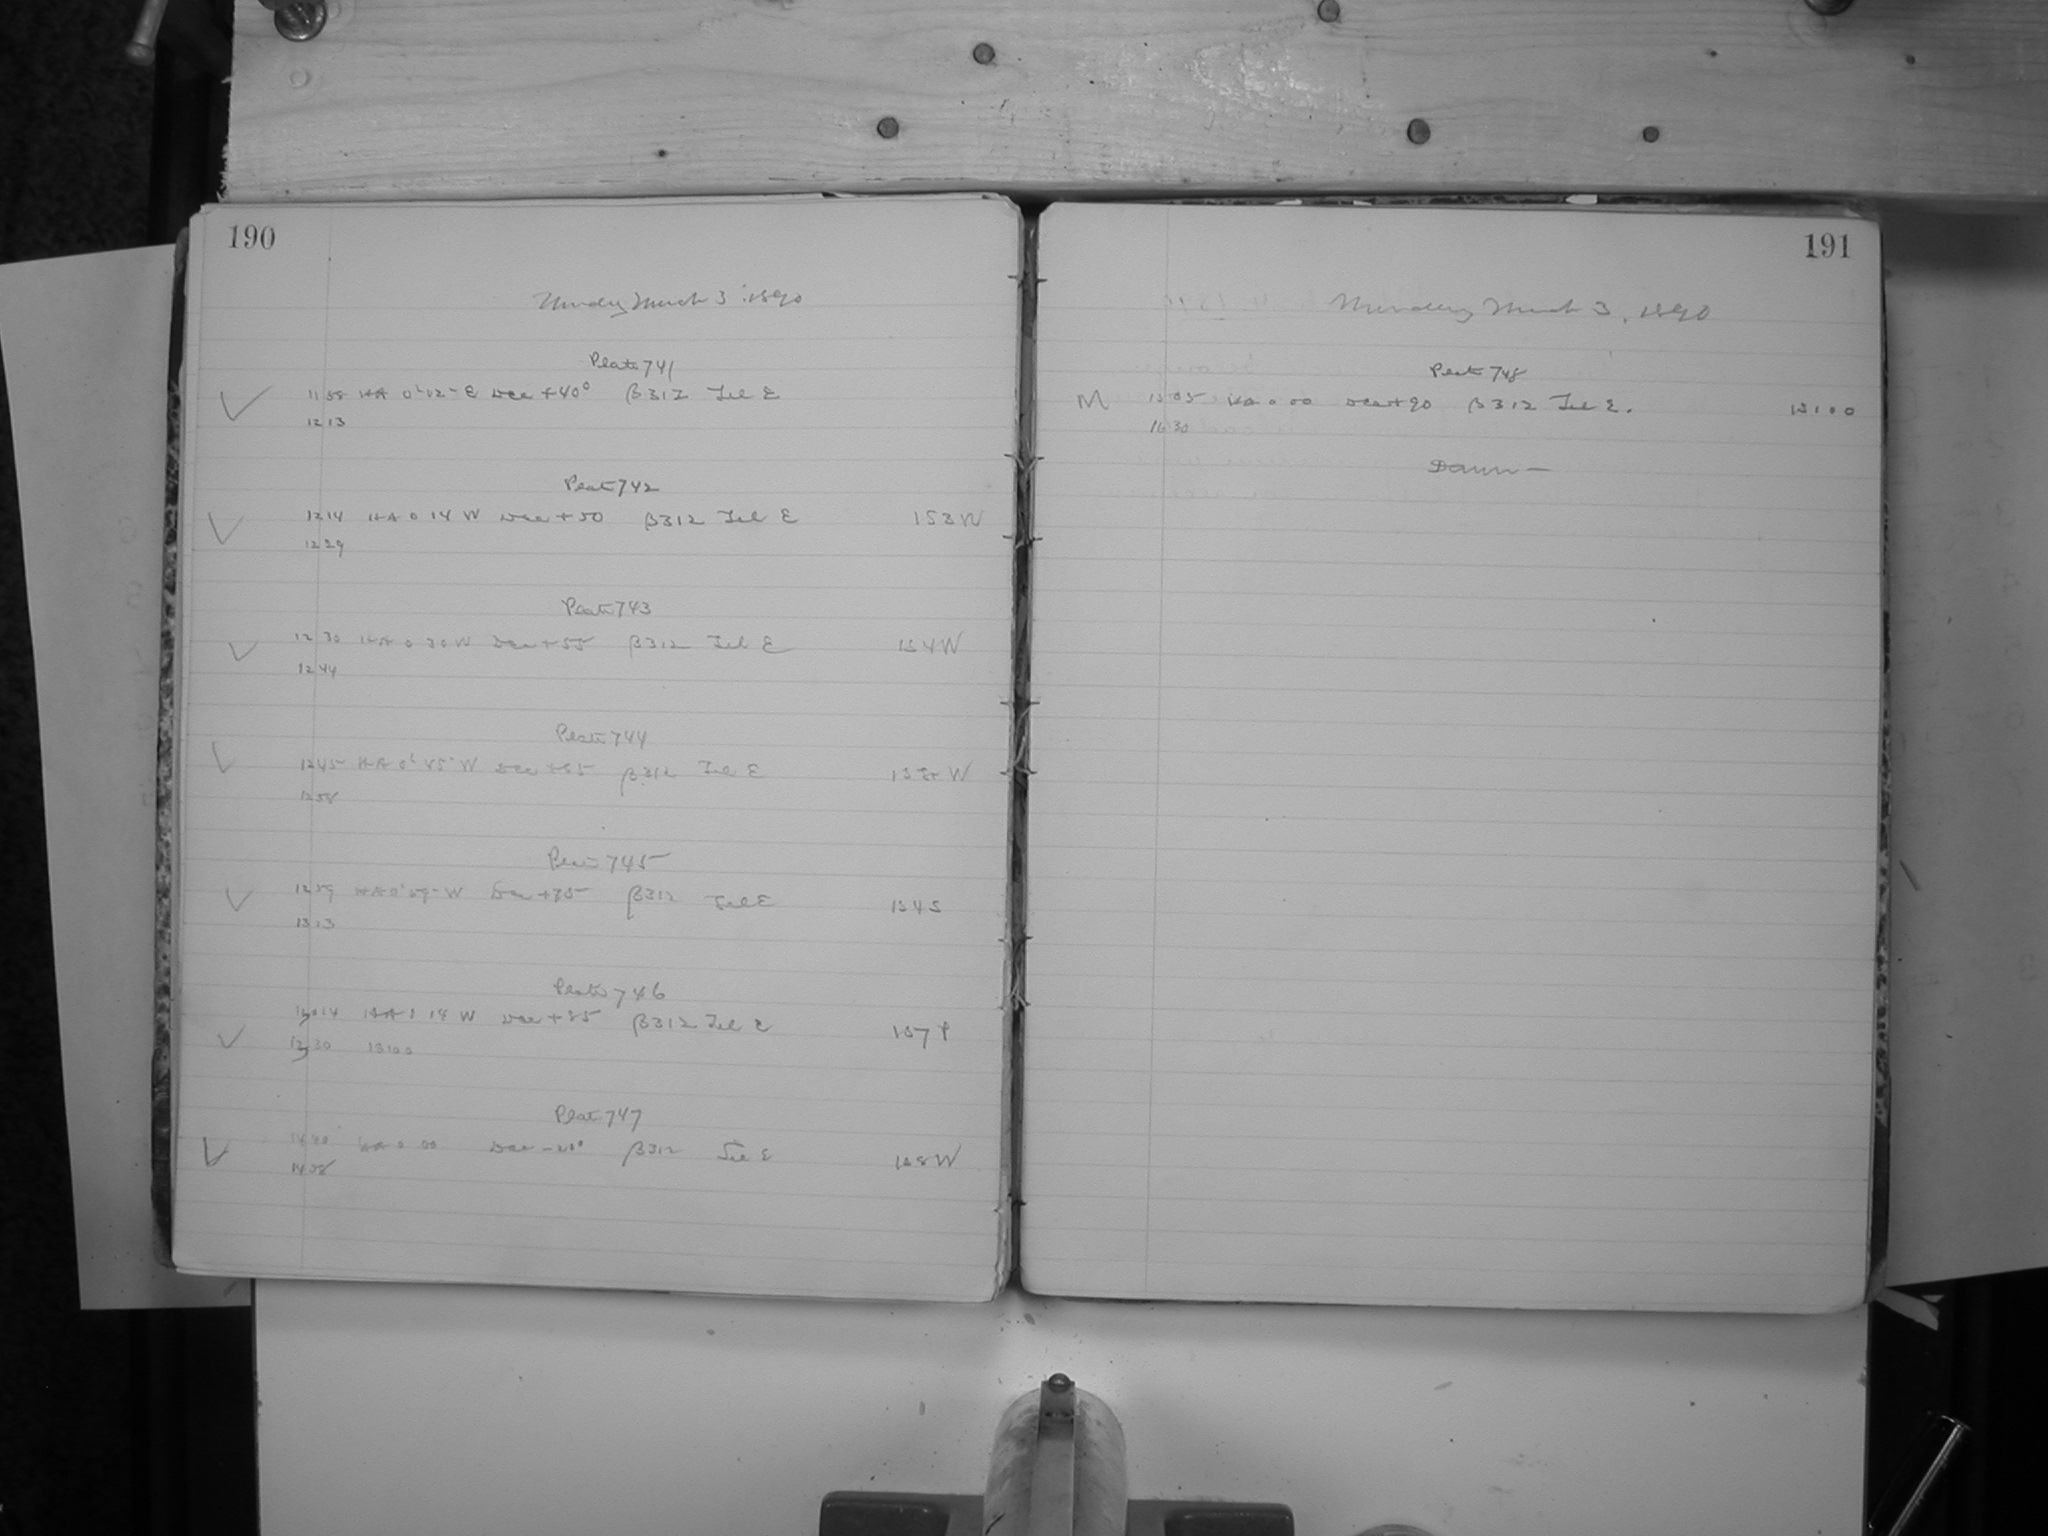 190
Monday March 3 1890
Plate 741
1158 HA 0 02 E Dec +40° β312 Tel E
1213
Plate 742
1214 HA 0 14 W Dec +50 β312 Tel E 153 W
1229
Plate 743
1230 HA 0 30 W Dec +55 β312 Tel E 154 W
1244
Plate 744
1245 HA 0 45 W Dec β312 Tel E W
1258
Plate 745
1259 HA 0 59 W Dec +75 β312 Tel E
1313
Plate 746
14 HA 1 14 W Dec +85 β312 Tel E
30 13100
Plate 747
HA 0 00 Dec β312 Tel E W
1408
191
Monday March 3, 1890
Plate 748
M 1505 HA 0 00 Dec +90 β312 Tel E. 13100
1630
Dawn —